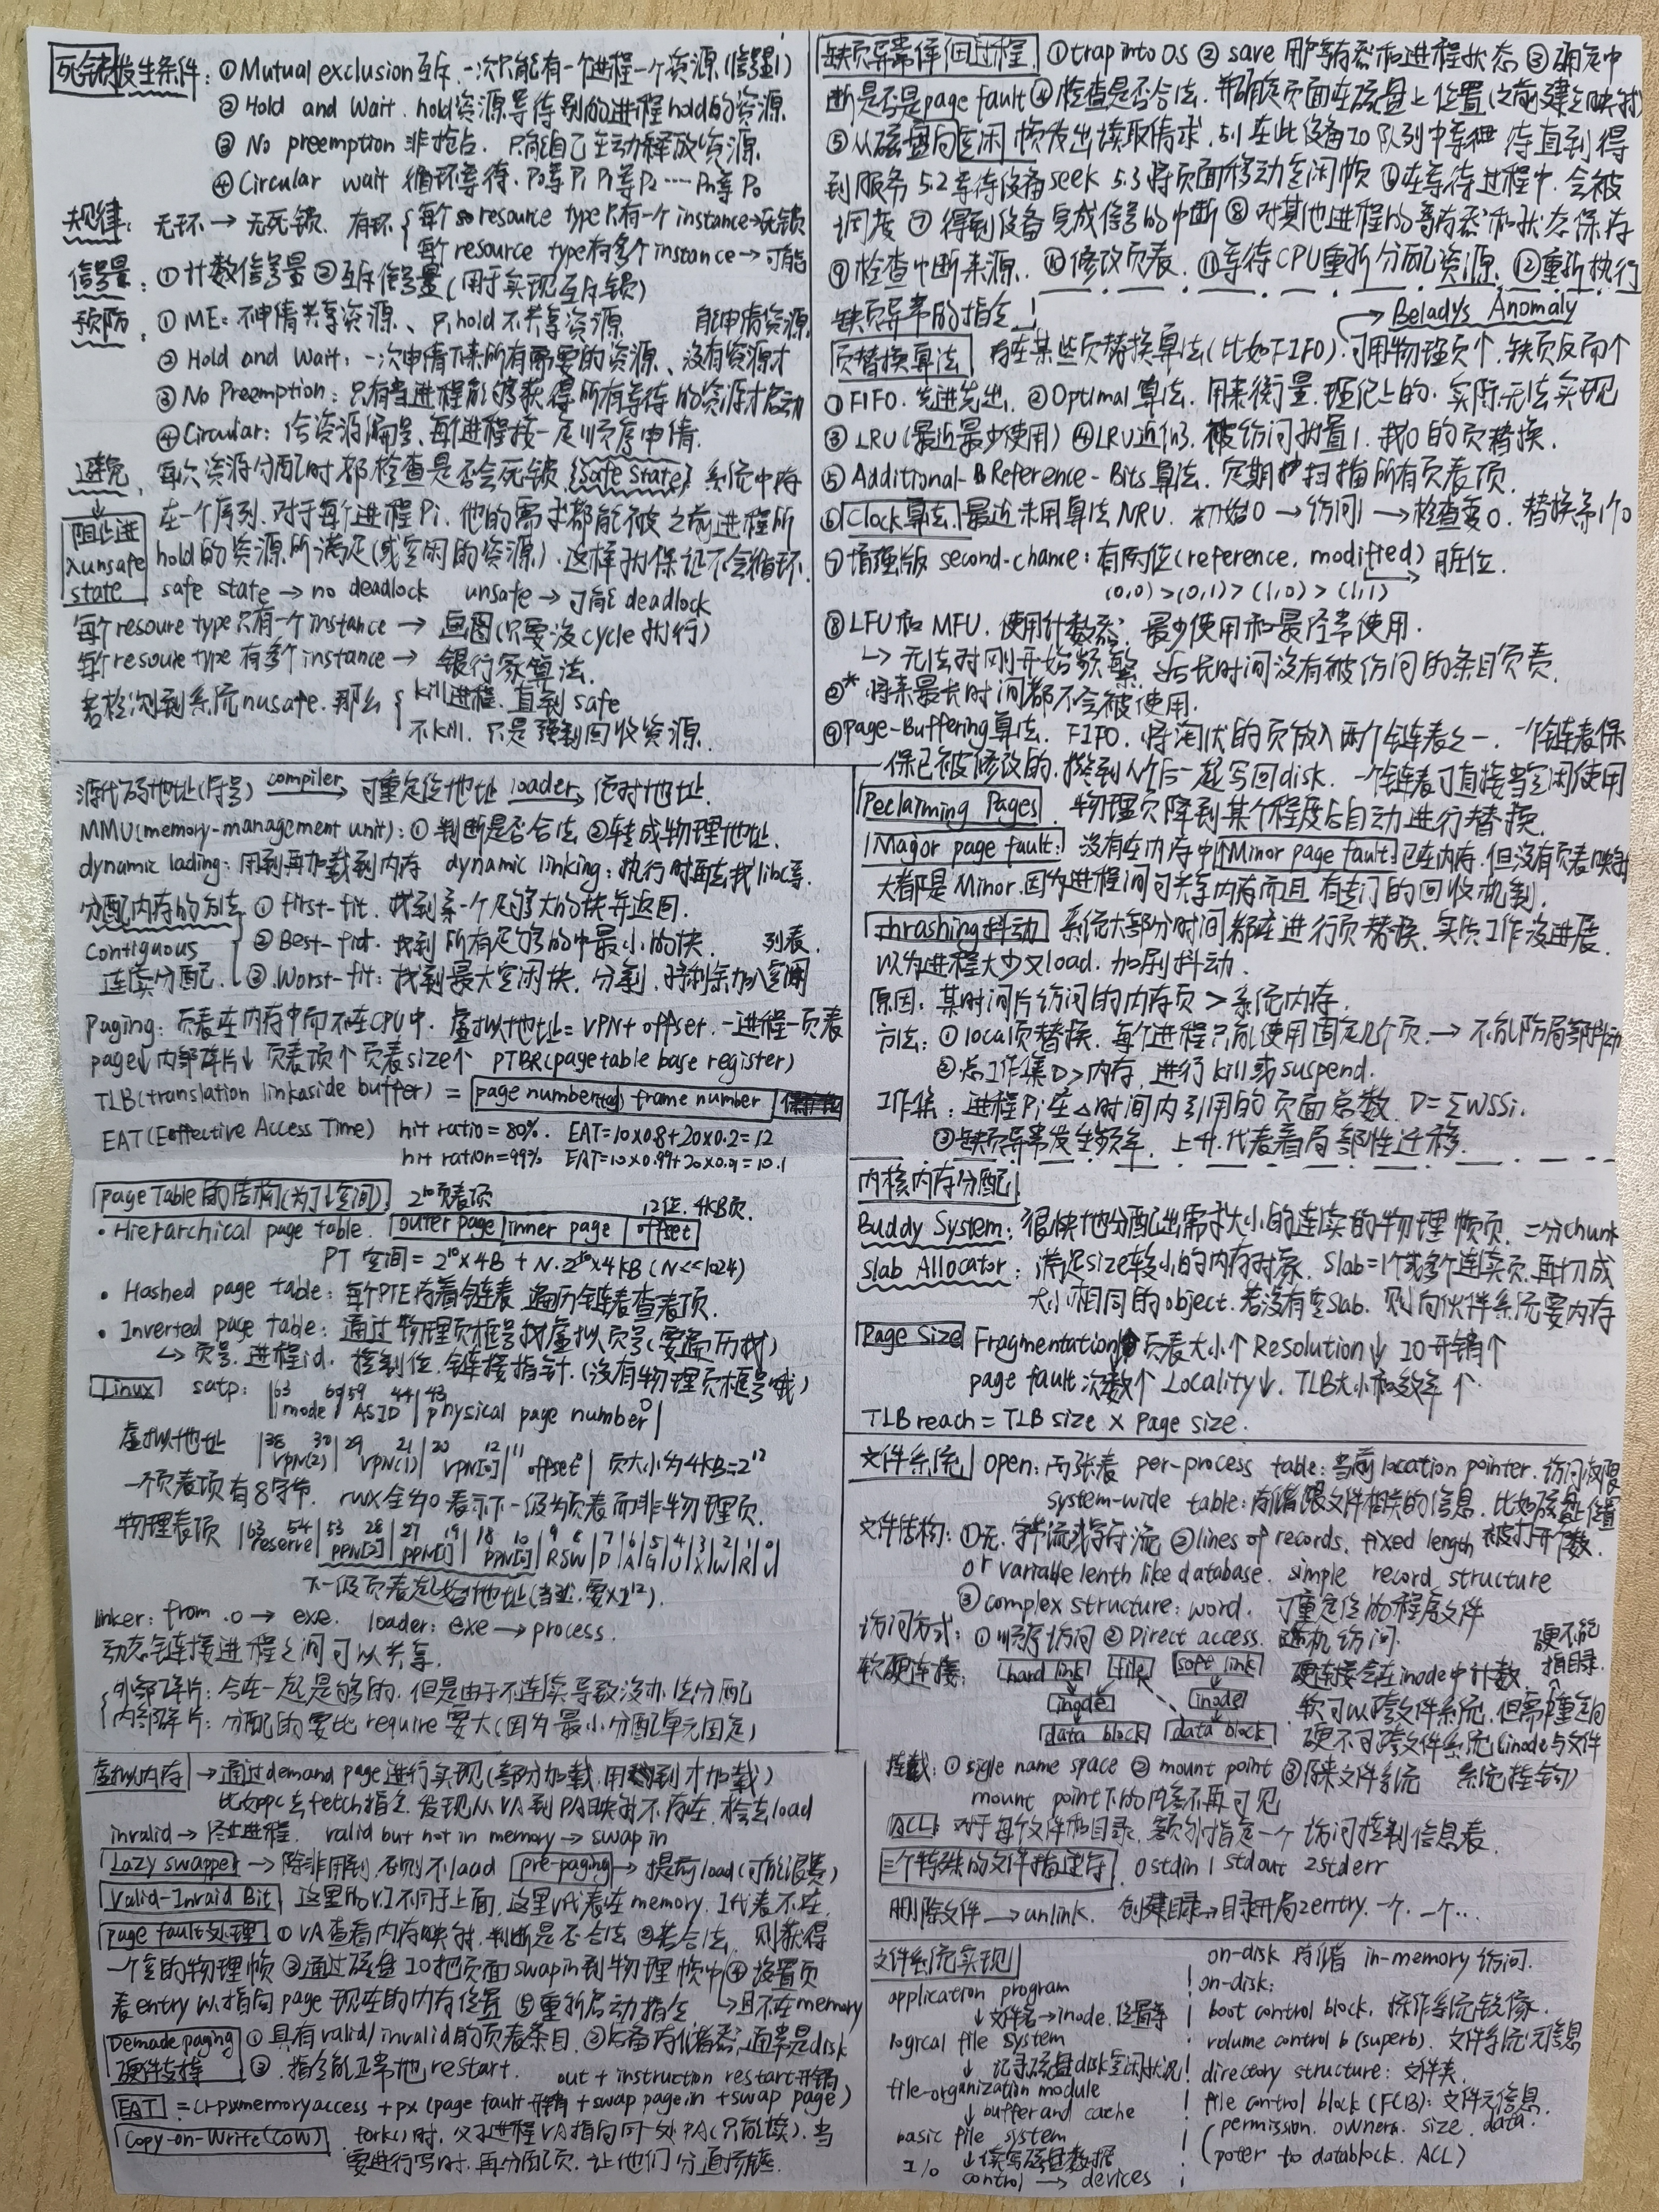 死锁发生条件：①Mutual exclusion互斥.一次只能有一个进程一个资源(信号量1)
②Hold and Wait. hold资源等待别的进程hold的资源
③No preemption 非抢占. 只能自己主动释放资源.
④Circular wait 循环等待. P0等P1 P1等P2 ---- Pn等P0
规律： 无环→无死锁. 有环{每个resource type只有一个instance→死锁
每个resource type有多个instance→可能
信号量：①计数信号量②互斥信号量(用于实现互斥锁)
预防. ①ME：不申请共享资源、只hold不共享资源 能申请资源
②Hold and Wait：一次申请下来所有需要的资源、没有资源才
③No Preemption：只有当进程能够获得所有等待的资源才启动
④Circular：给资源编号、每个进程按一定顺序申请.
避免. 每次资源分配时都检查是否会死锁(Safe State) 系统中存
阻止进入unsafe state
在一个序列.对于每个进程Pi.他的需求都能被之前进程所
hold的资源所满足(或空闲的资源).这样就保证不会循环.
safe state→no deadlock unsafe→可能deadlock
每个resoure type只有一个instance→画图(只要没cycle就行)
每个resoure type有多个instance→银行家算法.
若检测到系统nusafe.那么{kill进程.直到safe
不kill.只是强制回收资源.
源代码地址(符号) compiler→ 可重定位地址 loader→ 绝对地址.
MMU(memory-management unit)：①判断是否合法②转成物理地址.
dynamic lading：用到再加载到内存 dynamic linking：执行时再去找libc等.
分配内存的方法 ①first-fit.找到第一个足够大的块并返回.
Contiguous ②Best-fict. 找到所有足够的中最小的块. 列表.
连续分配. ③Worst-fit：找到最大空闲块.分割.将剩余加入空闲
Paging：页表在内存中而不在CPU中.虚拟地址=VPN+offset.一进程一页表
page↓内部碎片↓页表项↑页表size↑ PTBR(page table base register)
TLB(translation linkaside buffer) = page number(tag) frame number
EAT(Eoffective Access Time) hit ratio=80%. EAT=10×0.8+20×0.2=12
hit ration=99% EAT=10×0.99+20×0.01=10.1
page Table的结构(为了↓空间) 2^10页表项 12位.4KB页.
• Hierarchical page table. outer page inner page offset
PT 空间=2^10×4B + N·2^10×4KB (N<<1024)
• Hashed page table：每个PTE存着链表 遍历链表查表项.
• Inverted page table：通过物理页框号找虚拟页号(要遍历找)
↳页号.进程id.控制位.链接指针.(没有物理页框号哦)
Linux satp：|63 mode 60|59 ASID 44|43 physical page number 0|
虚拟地址 |38 VPN(2) 30|29 VPN(1) 21|20 VPN[0] 12|11 offset| 页大小为4KB=2^12
一个页表项有8字节. rwx全为0表示下一级为页表而非物理页.
物理表项 |63 reserve 54|53 PPN[2] 28|27 PPN[1] 19|18 PPN[0] 10|9 RSW 8|7 D|6 A|5 G|4 U|3 X|2 W|1 R|0 U|
下一级页表起始地址(当然.要×2^12).
linker：from .o→exe. loader：exe→process.
动态链接进程之间可以共享.
{外部碎片：合在一起是够的.但是由于不连续导致没办法分配
内部碎片：分配的要比require要大(因为最小分配单元固定)
虚拟内存→通过demand page进行实现(部分加载.用到才加载)
比如pc去fetch指令.发现从VA到PA映射不存在.检去load
invalid→终止进程. valid but not in memory→swap in
Lazy swapper→除非用到.否则不load pre-paging→提前load(可能浪费)
Valid-Invaid Bit 这里的VI不同于上面.这里V代表在memory. I代表不在.
page fault处理 ①VA查看内存映射.判断是否合法②若合法.则获得
一个空的物理帧③通过磁盘IO把页面swap in到物理帧中④设置页
表entry以指向page现在的内存位置⑤重新启动指令 ↳且不在memory
Demade paging硬件支持 ①具有valid/invalid的页表条目.②后备存储器.通常是disk
③.指令能正常地restart. out + instruction restart开销
EAT =(1-p)×memory access + p×(page fault开销 + swap page in + swap page)
Copy-on-Write(COW) . fork()时.父子进程VA指向同一处PA(只能读).当
要进行写时.再分配页.让他们分道扬镳.
缺页异常详细过程. ①trap into OS ②save 用户寄存器和进程状态③确定中
断是否是page fault④检查是否合法.并确定页面在磁盘上位置(之前建立映射)
⑤从磁盘向空闲帧发出读取请求. 5.1在此设备IO队列中等待直到得
到服务 5.2等待设备seek 5.3将页面移动空闲帧⑥在等待进程中.会被
调度⑦得到设备完成信号的中断⑧对其他进程的寄存器和状态保存
⑨检查中断来源.⑩修改页表.⑪等待CPU重新分配资源.⑫重新执行
缺页异常的指令 Beladys Anomaly
页替换算法 存在某些页替换算法(比如FIFO).可用物理页↑.缺页反而↑
①FIFO.先进先出.②Optimal算法.用来衡量.理论上的.实际无法实现
③LRU(最近最少使用)④LRU近似.被访问就置1.找0的页替换.
⑤Additional-Reference-Bits算法.定期扫描所有页表项.
⑥Clock算法.最近未用算法NRU. 初始0→访问1→检查变0.替换第1个0
⑦增强版 second-chance：有两位(reference, modified)脏位.
(0,0)>(0,1)>(1,0)>(1,1)
⑧LFU和MFU.使用计数器.最少使用和最经常使用.
↳无法对刚开始频繁.后长时间没有被访问的条目负责.
②* 将来最长时间都不会被使用.
⑨page-Buffering算法. FIFO.将淘汰的页放入两个链表之一.一个链表保
保已被修改的.攒到N个后一起写回disk.一个链表可直接当空闲使用
Peclarming Pages. 物理页降到某个程度后自动进行替换.
Magor page fault：没有在内存中 Minor page fault.已在内存.但没有页表映射
大都是Minor.因为进程间可共享内存而且有专门的回收机制.
thrashing抖动 系统大部分时间都在进行页替换.实质工作没进展.
以为进程太少又load.加剧抖动.
原因：某时间片访问的内存页>系统内存.
方法：①local页替换.每个进程只能使用固定几个页.→不能防局部抖动
②总工作集D>内存.进行kill或suspend.
工作集：进程Pi在△时间内引用的页面总数. D=∑WSSi.
③缺页异常发生频率.上升.代表着局部性迁移.
内核内存分配
Buddy System：很快地分配出需求大小的连续的物理帧页.二分chunk
Slab Allocator：满足size较小的内存对象. Slab=1个或多个连续页.再切成
大小相同的object.若没有空slab.则向伙伴系统要内存
Page size Fragmentation 页表大小↑ Resolution↓ IO开销↑
page fault次数↑ Locality↓. TLB大小和效率↑.
TLB reach = TLB size × Page size.
文件系统 open：两张表 per-process table：当前location pointer.访问权限
system-wide table：存储跟文件相关的信息.比如磁盘位置
文件结构：①无.字节流或字符流②lines of records. fixed length 被打开个数.
or variable lenth like database. simple record structure
③complex structure：word. 可重定位的程序文件
访问方式：①顺序访问②Direct access. 随机访问. 硬不能
软硬连接： hard link file soft link 硬连接会在inode中计数. 指目录.
inode inode 软可以跨文件系统.但需中重定向
data block data block 硬不可跨文件系统(inode与文件
挂载：①sigle name space ②mount point ③原来文件系统 系统挂钩)
mount point下的内容不再可见
ACL：对于每个文件和目录.额外指定一个访问控制信息表.
三个特殊的文件描述符. 0 stdin 1 stdout 2 stderr
删除文件→unlink. 创建目录→目录开局2entry.一个.一个..
文件系统实现
application program
↓文件名→inode.位置等
logical file system
↓记录磁盘disk空闲状况
file-organization module
↓buffer and cache
basic file system
↓读写磁盘数据
I/o control→devices
on-disk 存储 in-memory 访问.
on-disk：
boot control block. 操作系统镜像.
volume control b (superb). 文件系统元信息
directory structure：文件夹.
file control block (FCB)：文件元信息.
(permission. owners. size. data.
poter to datablock. ACL)